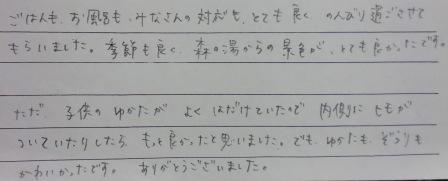 ごはんも、お風呂も、みなさんの対応も、とても良く、のんびり過ごさせて
もらいました。季節も良く、森の湯からの景色が、とても良かったです。
ただ、子供の ゆかたが よく はだけていたので 内側に ヒモが
ついていたりしたら、もっと良かったと思いました。でも、ゆかたも、ぞうりも
かわいかったです。 ありがとうございました。